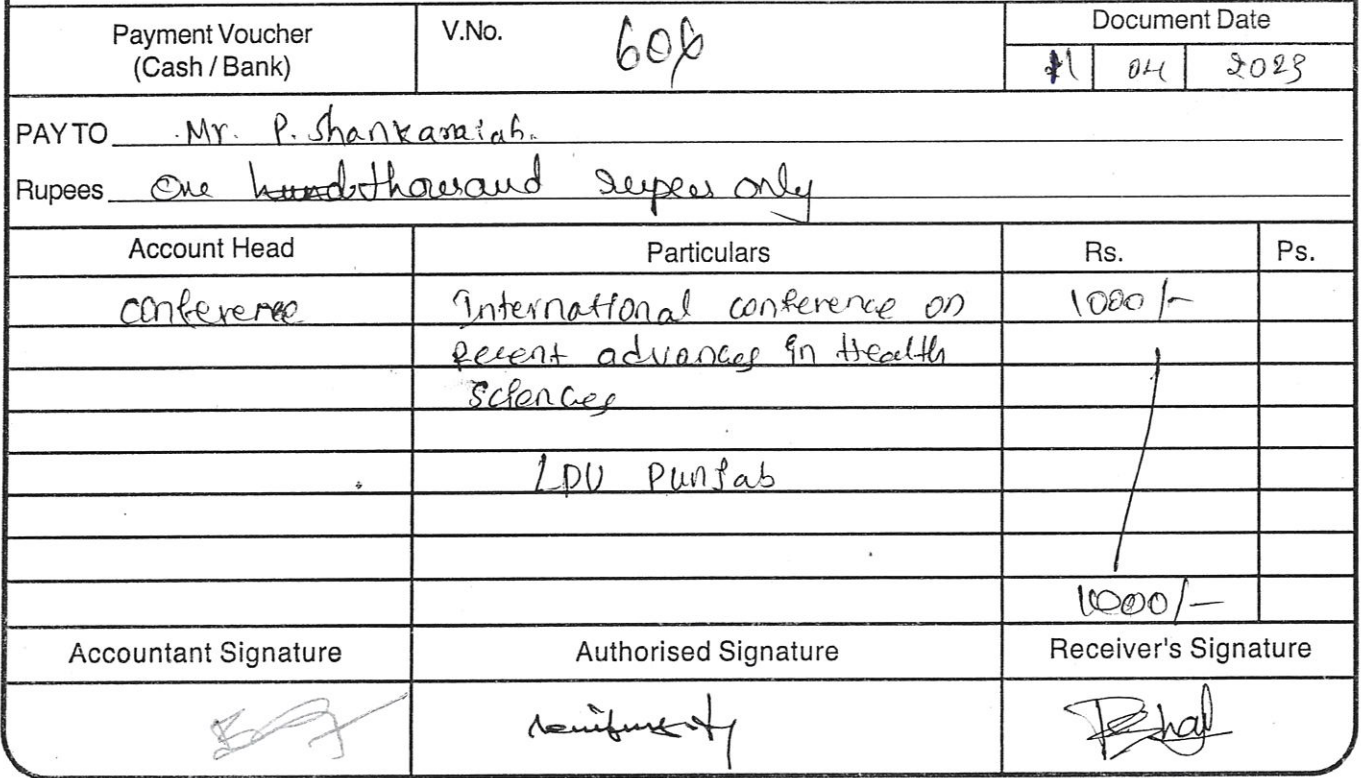 Payment Voucher
(Cash / Bank)
V.No. 606
Document Date
11 04 2023
PAY TO Mr. P. Shankaraiah.
Rupees One thousand rupees only
Account Head Particulars Rs. Ps.
conference International conference on 1000/-
Recent advances in Health
Sciences
LPU Punjab
1000/-
Accountant Signature Authorised Signature Receiver's Signature